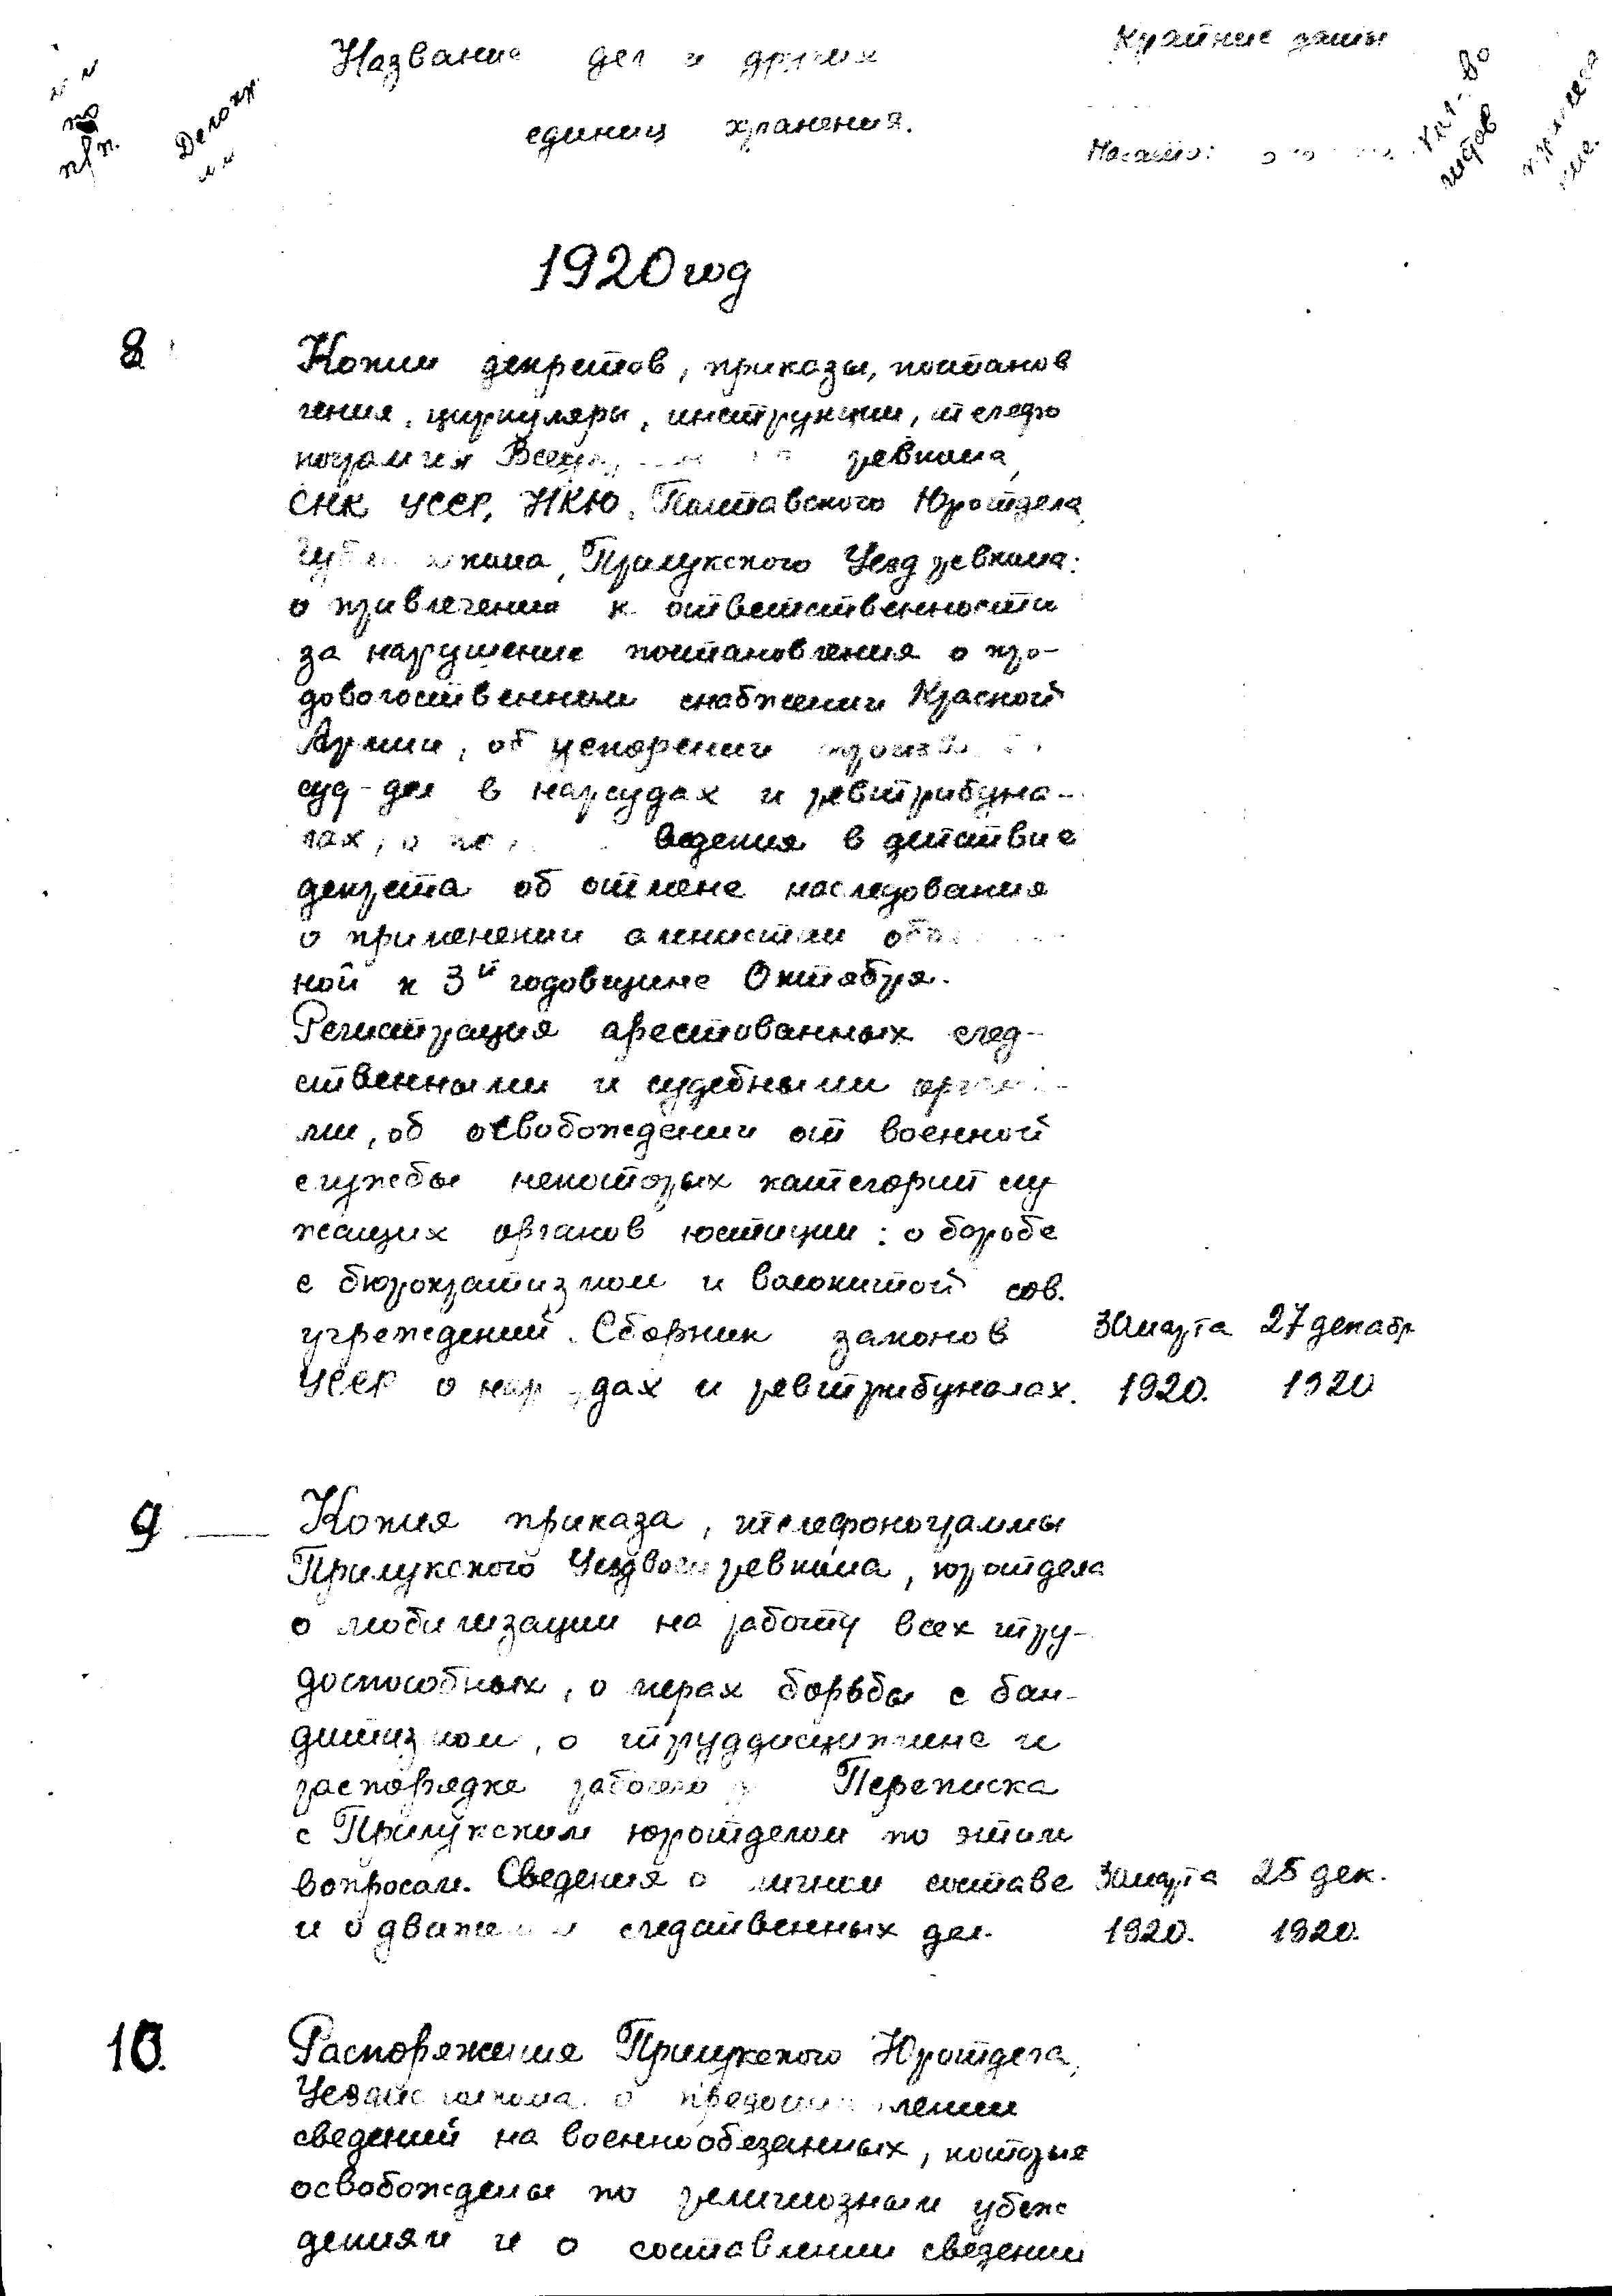 Название дел и других
Крайние даты
№№
по
п/п.
Делопр.
№№
единиц хранения.
листов
1920 год
8
Копии декретов, приказы, постанов
ления, циркуляры, инструкции, телефо
ревкома,
СНК УССР, НКЮ, Полтавского Юротдела,
Прилукского Уездревкома:
о привлечении к ответственности
за нарушение постановления о про-
довольственном снабжении Красной
Армии, об ускорении
суд-дел в нарсудах и ревтрибуна-
лах, о ведения в действие
декрета об отмене наследования
о применении амнистии
ной к 3й годовщине Октября.
Регистрация арестованных след-
ственными и судебными
ми, об освобождении от военной
службы некоторых категорий слу
жащих органов юстиции: о борьбе
с бюрократизмом и волокитой сов.
учреждений. Сборник законов 30 марта 27 декабр
УССР о и ревтрибуналах. 1920. 1920
9 Копия приказа, телефонограммы
Прилукского ревкома, юротдела
о мобилизации на работу всех тру-
доспособных, о мерах борьбы с бан-
дитизмом, о труддисциплине и
распорядке Переписка
с Прилукским юротделом по этим
вопросам. Сведения о личном составе 30 марта 25 дек.
и о следственных дел. 1920. 1920.
10. Распоряжения Прилукского Юротдела,
о
сведений на военнообязанных, которые
освобождены по религиозным убеж
дениям и о составлении сведений